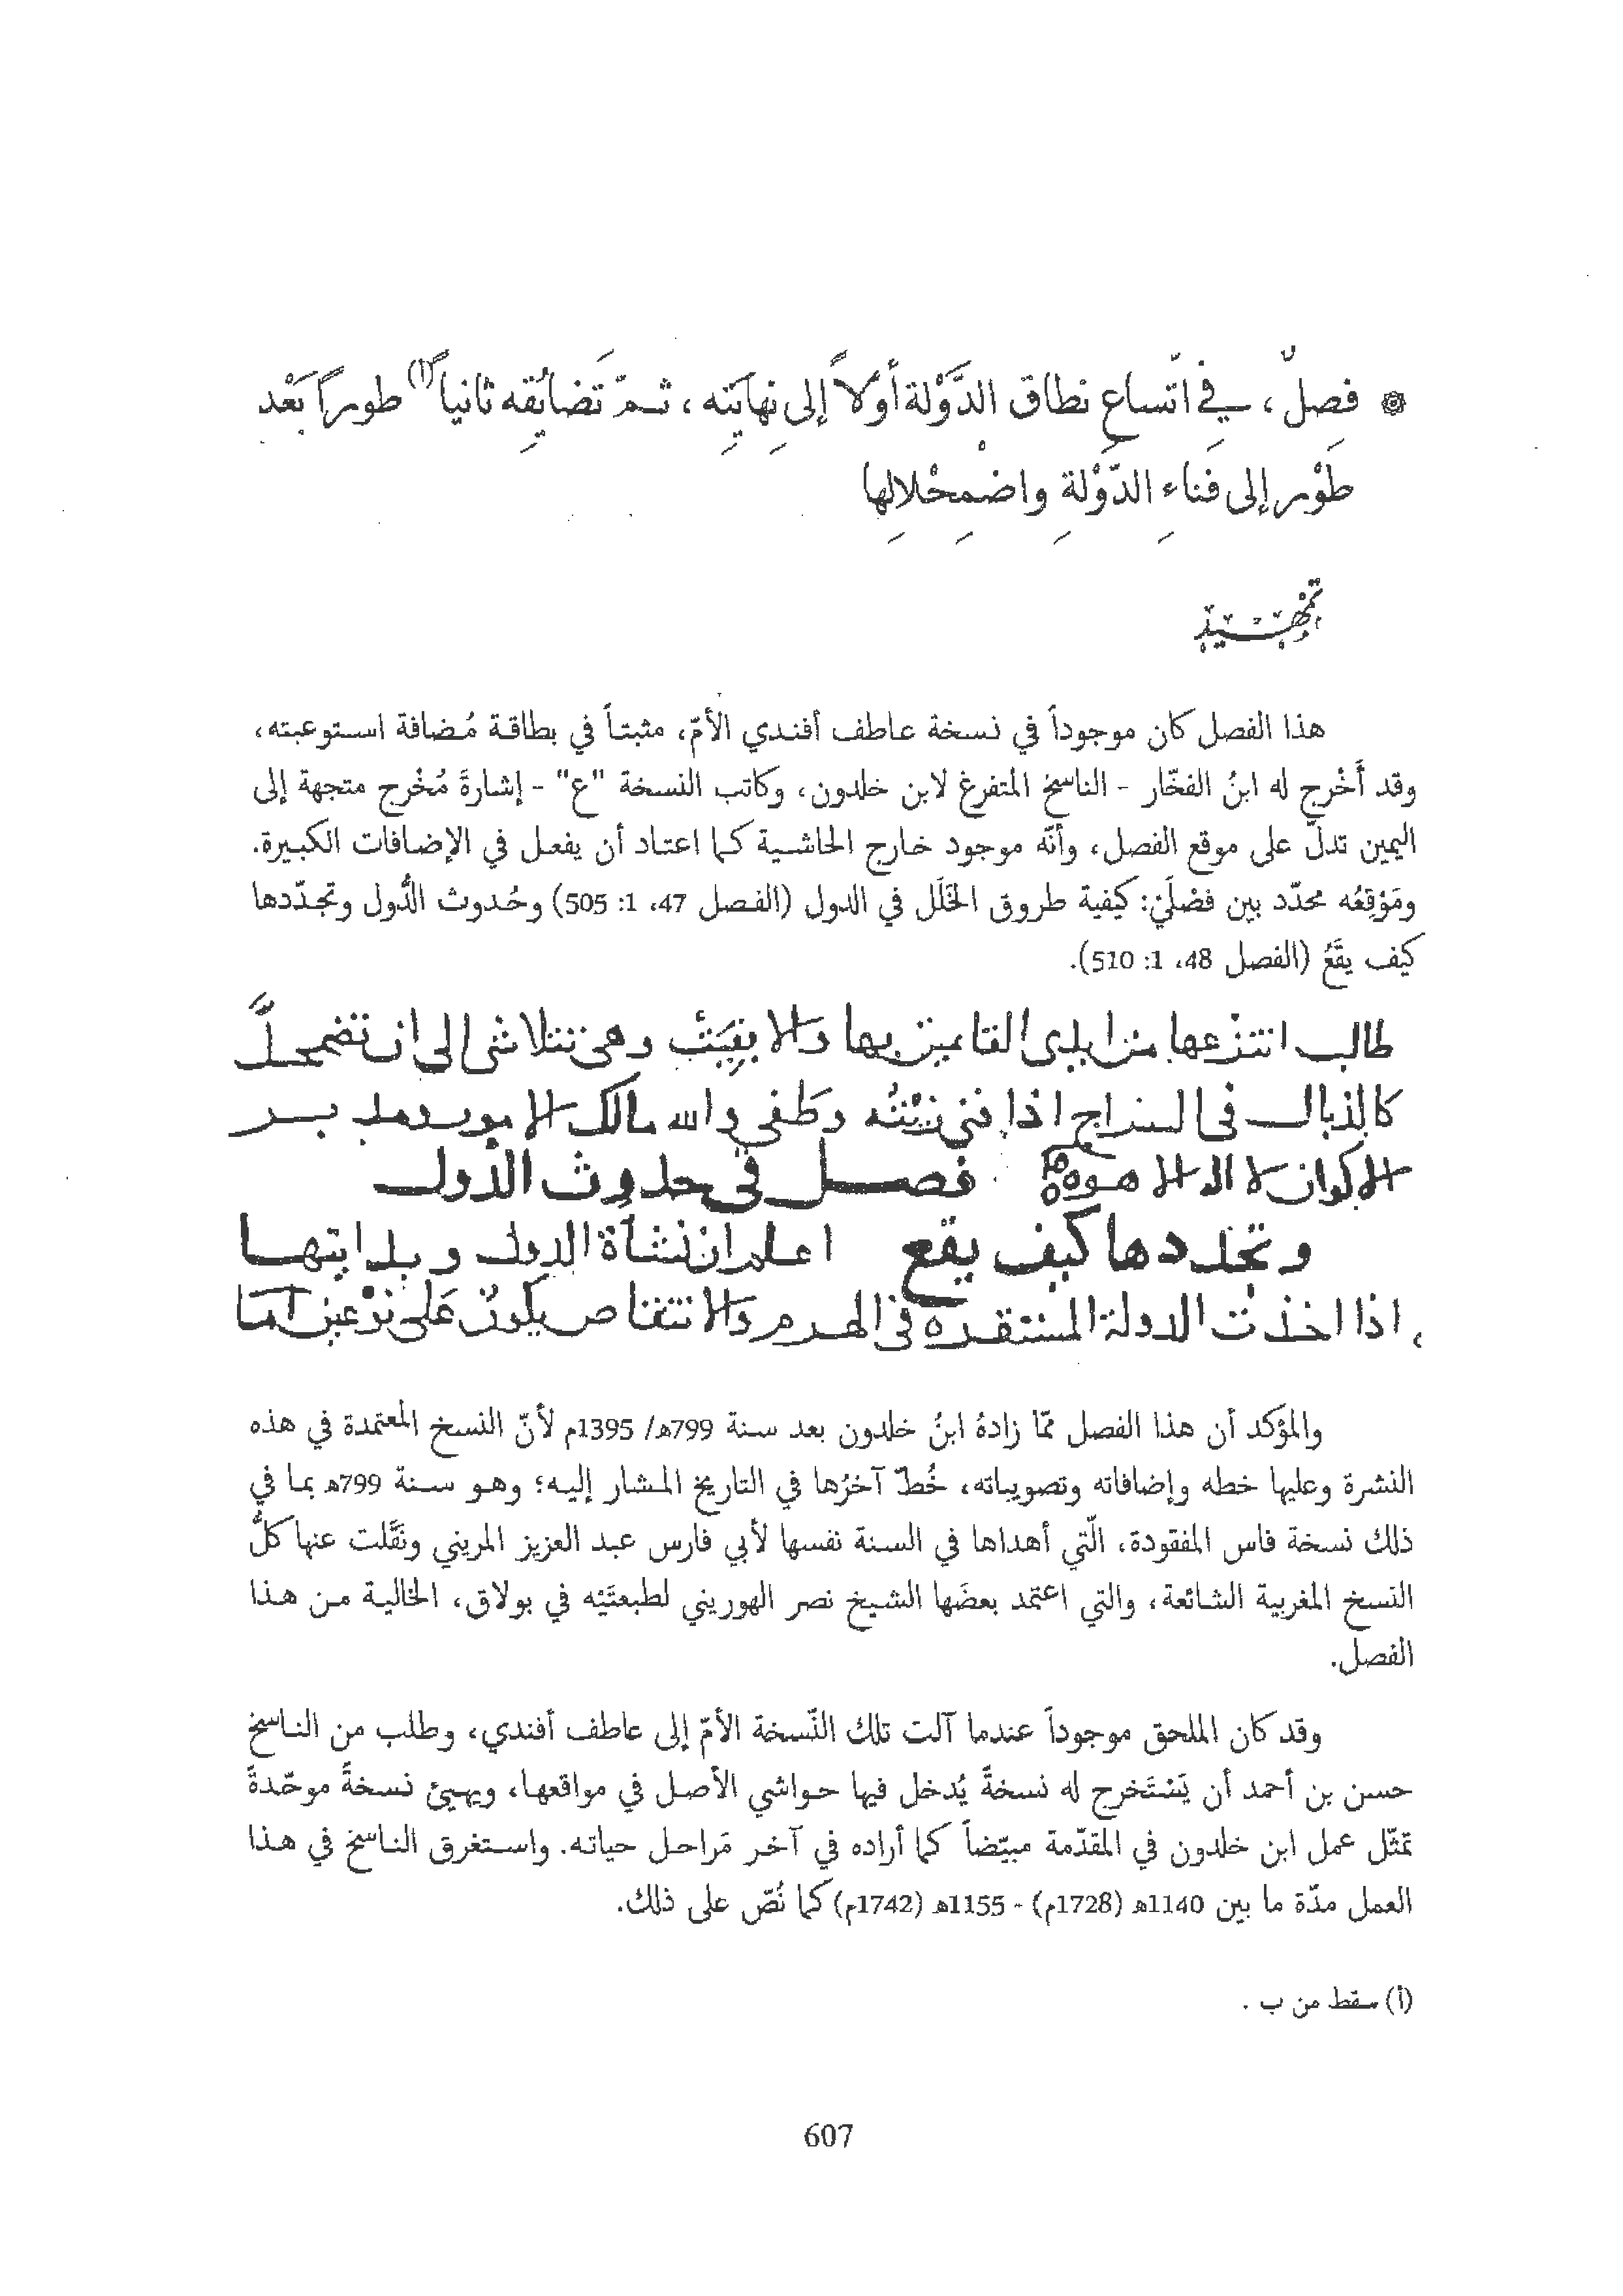 ۞ فصلٌ، في اتّساعِ نطاق الدَّوْلة أوّلاً إلى نِهايَتِه، ثمّ تَضايُقِه ثانياً(أ) طوراً بَعْد
طَوْر إلى فَناءِ الدّوْلةِ واضْمِحْلالِها
تمهيد
هذا الفصل كان موجوداً في نسخة عاطف أفندي الأمّ، مثبتاً في بطاقة مُضافة استوعبته،
وقد أَخْرج له ابنُ الفخّار - الناسخ المتفرغ لابن خلدون، وكاتب النسخة "ع" - إشارةَ مُخْرج متجهة إلى
اليمين تدلّ على موقع الفصل، وأنّه موجود خارج الحاشية كما اعتاد أن يفعل في الإضافات الكبيرة.
ومَوْقِعُه محدّد بين فصْليَ: كيفية طروق الخَلَل في الدول (الفصل 47، 1: 505) وحُدوث الدُّول وتجدّدها
كيف يقَعُ (الفصل 48، 1: 510).
طالب انتزعها من ايدى القايمين بها والا بقيت وهى تتلاشى الى ان تضمحلّ
كالذبال فى السراج اذا فنى زيته وطفى والله مالك الامور ومدبر
الاكوان لا اله الا هو فصل فى حدوث الدول
وتجددها كيف يقع اعلم ان نشأة الدول وبدايتها
اذا اخذت الدولة المستقرة فى الهرم والانتقاص يكون على نوعين اما
والمؤكد أن هذا الفصل ممّا زادهُ ابنُ خلدون بعد سنة 799ه/ 1395م لأنّ النسخ المعتمدة في هذه
النشرة وعليها خطه وإضافاته وتصويباته، خُطّ آخرُها في التاريخ المشار إليه؛ وهو سنة 799ه بما في
ذلك نسخة فاس المفقودة، الّتي أهداها في السنة نفسها لأبي فارس عبد العزيز المريني ونَقَلت عنها كلُّ
النسخ المغربية الشائعة، والتي اعتمد بعضَها الشيخ نصر الهوريني لطبعتَيْه في بولاق، الخالية من هذا
الفصل.
وقد كان الملحق موجوداً عندما آلت تلك النّسخة الأمّ إلى عاطف أفندي، وطلب من الناسخ
حسن بن أحمد أن يَسْتَخرج له نسخةً يُدخل فيها حواشي الأصل في مواقعها، ويهيئ نسخةً موحّدةً
تمثّل عمل ابن خلدون في المقدّمة مبيّضاً كما أراده في آخر مَراحل حياته. واستغرق الناسخ في هذا
العمل مدّة ما بين 1140ه (1728م) - 1155ه (1742م) كما نُصّ على ذلك.
(أ) سقط من ب .
607